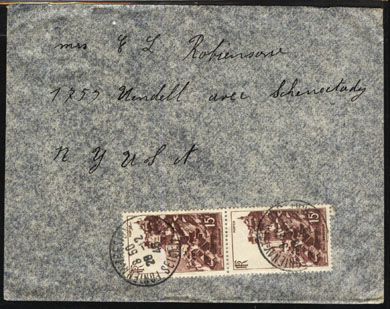 mrs E L Robinsone
1753 Wendell avec Schenectady
N Y U S A
15F
15F
RF